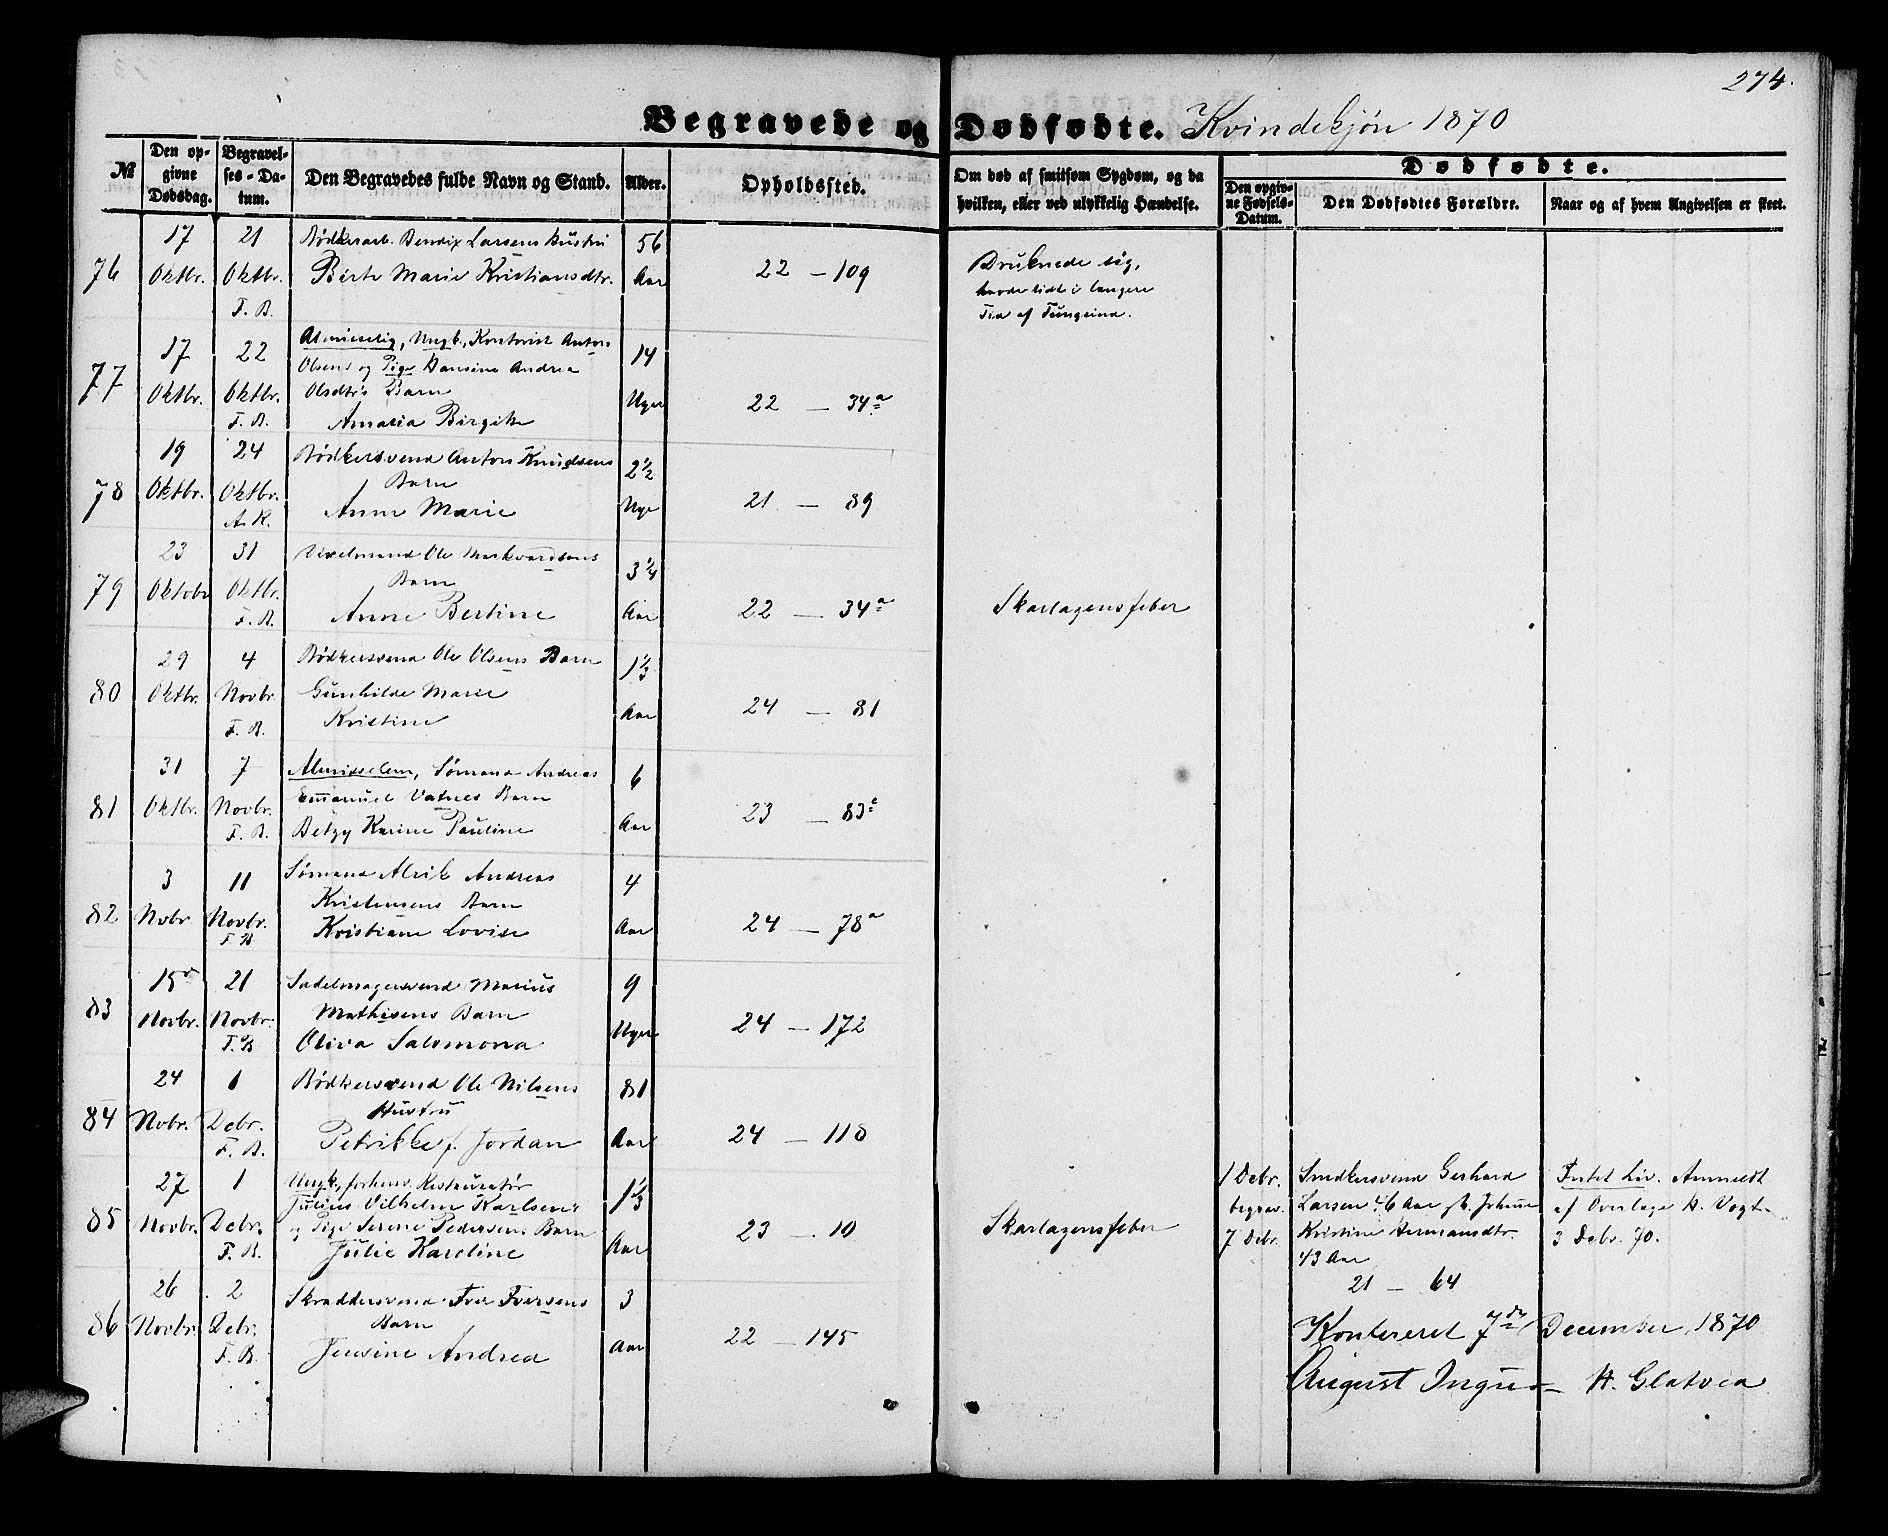 274.
Begravede og Dødfødte. Kvindekjøn 1870
№
Den opgivne Dødsdag.
Begravelses-Datum.
Den Begravedes fulde Navn og Stand.
Alder.
Opholdssted.
Om død af smitsom Sygdom, og da hvilken, eller ved ulykkelig Hændelse.
Dødfødte.
Den opgivne Fødsels-Datum.
Den Dødfødtes Forældre.
Naar og af hvem Angivelsen er skeet.
76
17 Oktbr.
21 Oktbr. F. B.
Bødkerarb. Bendix Larsens Hustru
Birte Marie Kristiansdtr.
56 Aar
22 — 109
Druknede sig,
havde lidt i længere
Tid af Tungsind.
77
17 Oktbr.
22 Oktbr. F. B.
Almisselig, Ungk., Kontorist Anton
Olsens og Pige Hansine Andrea
Olsdtr's Barn
Amaria Birgitte
14 Uger
22 — 34a
78
19 Oktbr.
24 Oktbr. A. K.
Bødkersvend Anton Knudsens
Barn
Anne Marie
2½ Uge
21 — 89
79
23 Oktobr
31 Oktbr. F. B.
Ole Markvardsens
Barn
Anne Bertine
3¼ Aar
22 — 34a
Skarlagensfeber
80
29 Oktbr.
4 Novbr. F. B.
Bødkersvend Ole Olsens Barn
Gunhilde Marie
Kristine
1⅓ Aar
24 — 81
81
31 Oktbr.
7 Novbr. F. B.
Almisselem, Sømand Andreas
Emanuel Vatnes Barn
Betzy Karine Pauline
6 Aar
23 — 83c
82
3 Novbr.
11 Novbr. F B
Sømand Alrik Andreas
Kristensens Barn
Kristiane Lovise
4 Aar
24 — 78a
83
15 Novbr.
21 Novbr. F. B
Sadelmagersvend Marius
Mathisens Barn
Oliva Salomona
9 Uger
24 — 172
84
24 Novbr.
1 Debr. F. B.
Bødkersvend Ole Nilsens
Hustru
Petrikke f. Jordan
81 Aar
24 — 118
85
27 Novbr.
1 Debr. F. B.
Ungk., forhenv. Restauratør
Julius Vilhelm Karlsens
og Pige Serine Pedersens Barn
Julie Karoline
1⅓ Aar
23 — 10
Skarlagensfeber
1 Debr.
begrav.
7 Debr.
Smedkersvend Gerhard
Larsen 46 Aar
Kristine Hermansdtr.
43 Aar
21 — 64
Intet Liv. Anmeldt
af Overlæge H. Vogt
3 Debr. 70.
86
26 Novbr.
2 Debr. F. B.
Skræddersvend Iver Iversens
Barn
Jensine Andrea
3 Aar
22 — 145
Konfereret 7de December 1870
August H. Glatved